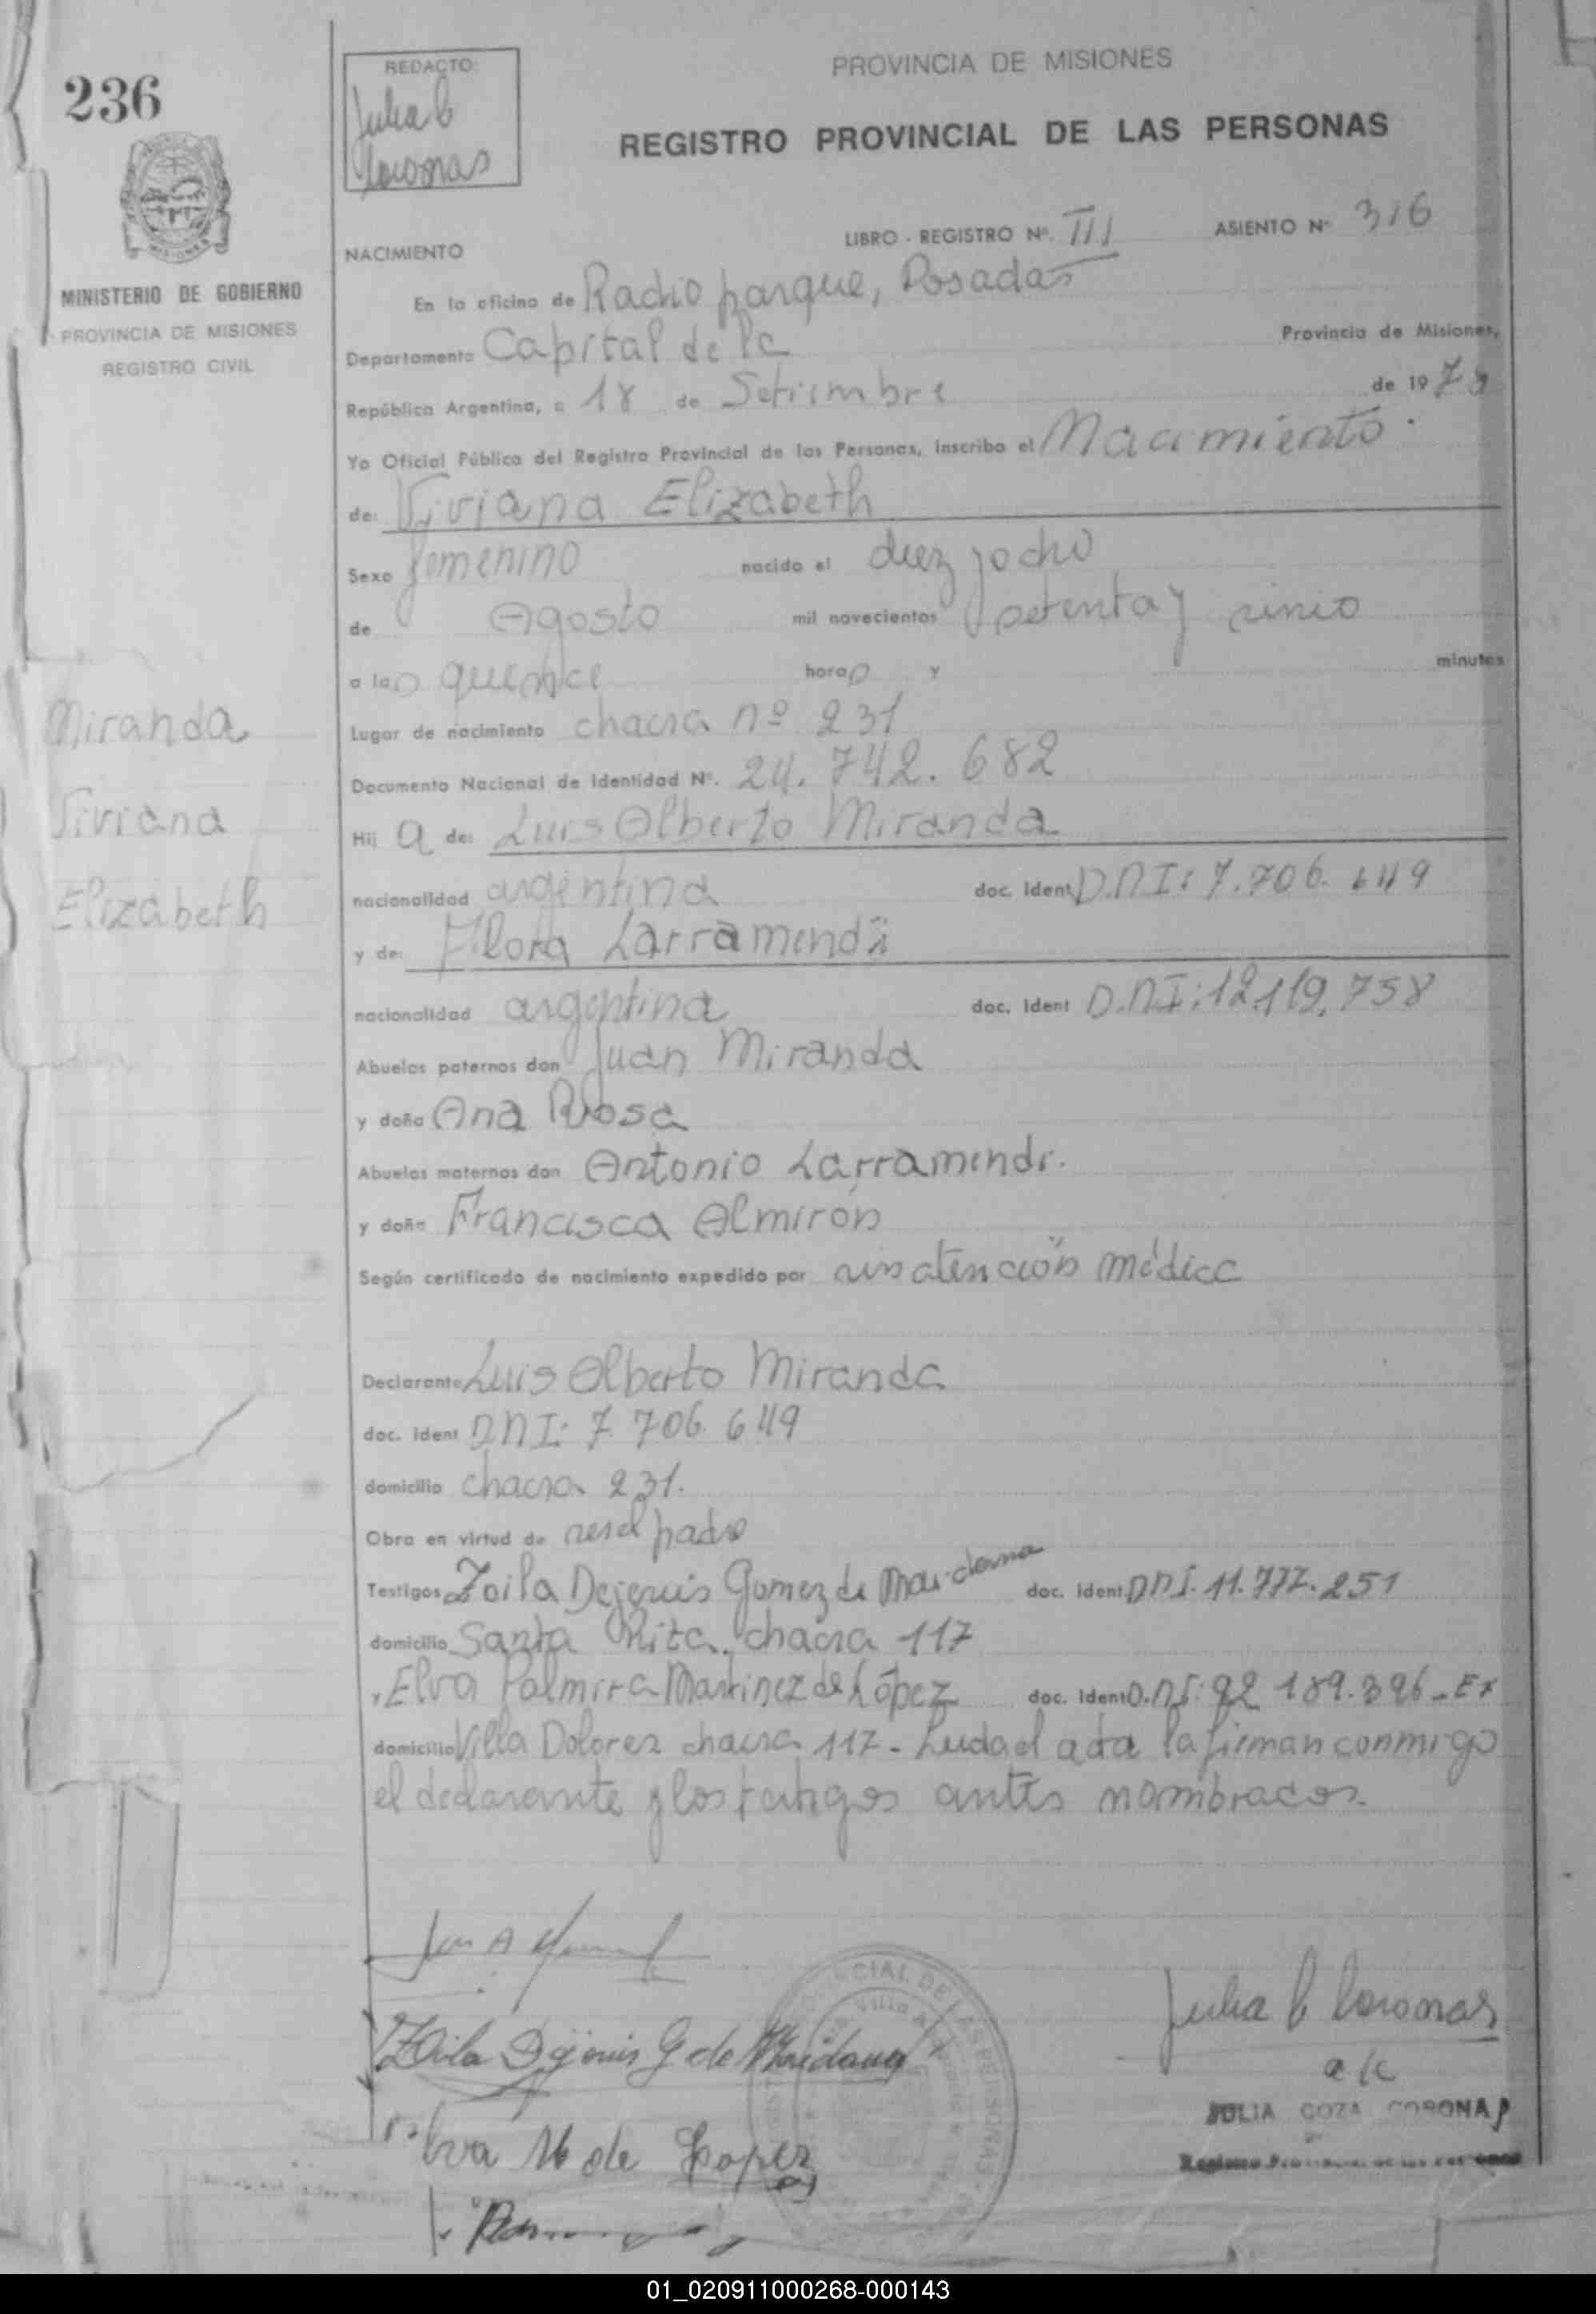 236
REDACTO:
Julia C
Coronas
PROVINCIA DE MISIONES
REGISTRO PROVINCIAL DE LAS PERSONAS
MISIONES
MINISTERIO DE GOBIERNO
PROVINCIA DE MISIONES
REGISTRO CIVIL
NACIMIENTO
LIBRO - REGISTRO Nº. III
ASIENTO Nº 316
En la oficina de Radio parque, Posadas
Departamento Capital de la Provincia de Misiones,
República Argentina, a 18 de Setiembre de 197
Yo Oficial Público del Registro Provincial de las Personas, inscribo el Nacimiento.
de: Viviana Elizabeth
Sexo femenino nacido el diez y ocho
de Agosto mil novecientos setenta y cinco
a las quince horas y minutos
Lugar de nacimiento chacra nº 231
Documento Nacional de Identidad Nº. 24.742.682
Hij a de: Luis Alberto Miranda
nacionalidad argentina doc. Ident D.N.I: 7.706.649
y de: Flora Larramendi
nacionalidad argentina doc. Ident D.N.I: 12.119.758
Abuelos paternos don Juan Miranda
y doña Ana Rosa
Abuelos maternos don Antonio Larramendi.
y doña Francisca Almirón
Según certificado de nacimiento expedido por sin atención médica
Declarante Luis Alberto Miranda
doc. ident D.N.I: 7.706.649
domicilio chacra 231.
Obra en virtud de ser el padre
Testigos Zoila Dejesus Gomez de Maidana doc. Ident D.N.I. 11.777.251
domicilio Santa Rita, chacra 117
y Elva Palmira Martinez de López doc. Ident D.N.I: 92.189.396-Ex
domicilio Villa Dolores chacra 117- Leida el acta la firman conmigo
el declarante y los testigos antes nombrados.
Miranda
Viviana
Elizabeth
Zoila Dejesus G de Maidana
Elva M de Lopez
Julia C Coronas
a/c
JULIA COZA CORONAS
01_020911000268-000143